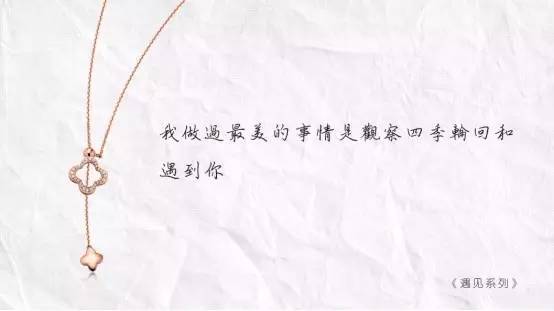 我做過最美的事情是觀察四季輪回和
遇到你
《遇见系列》